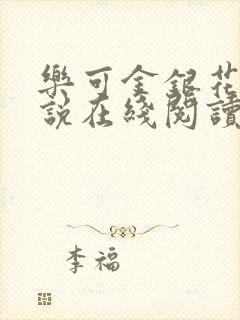 樂可金銀花
說在綫閱讀
李福